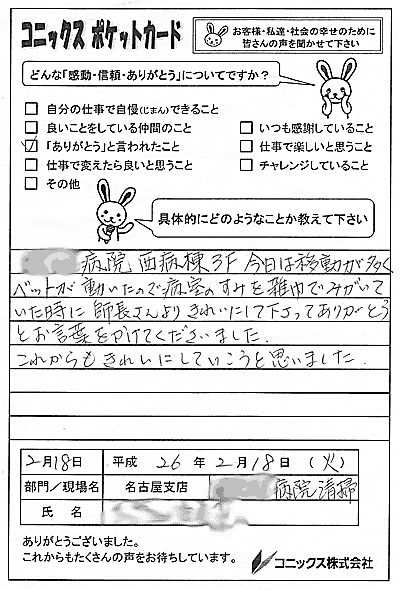 コニックス ポケットカード
お客様・私達・社会の幸せのために
皆さんの声を聞かせて下さい
どんな「感動・信頼・ありがとう」についてですか？
自分の仕事で自慢(じまん)できること
良いことをしている仲間のこと
いつも感謝していること
「ありがとう」と言われたこと
仕事で楽しいと思うこと
仕事で変えたら良いと思うこと
チャレンジしていること
その他
具体的にどのようなことか教えて下さい
病院 西病棟3F 今日は移動が多く
ベットが動いたので病室のすみを雑巾でみがいて
いた時に 師長さんより きれいにして下さってありがとう
とお言葉をかけてくださいました.
これからもきれいにしていこうと思いました.
2月18日 平成 26 年 2月 18日 (火)
部門／現場名 名古屋支店 病院清掃
氏 名
ありがとうございました。
これからもたくさんの声をお待ちしています。
コニックス株式会社